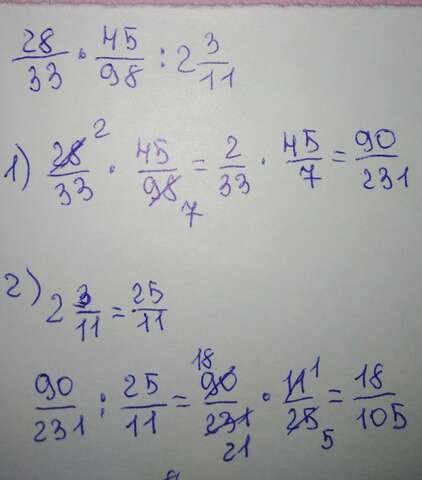 28/33 · 45/98 : 2 3/11
1) 28/33 · 45/98 = 2/33 · 45/7 = 90/231
2
7
2) 2 3/11 = 25/11
90/231 : 25/11 = 90/231 · 11/25 = 18/105
18 1
21 5